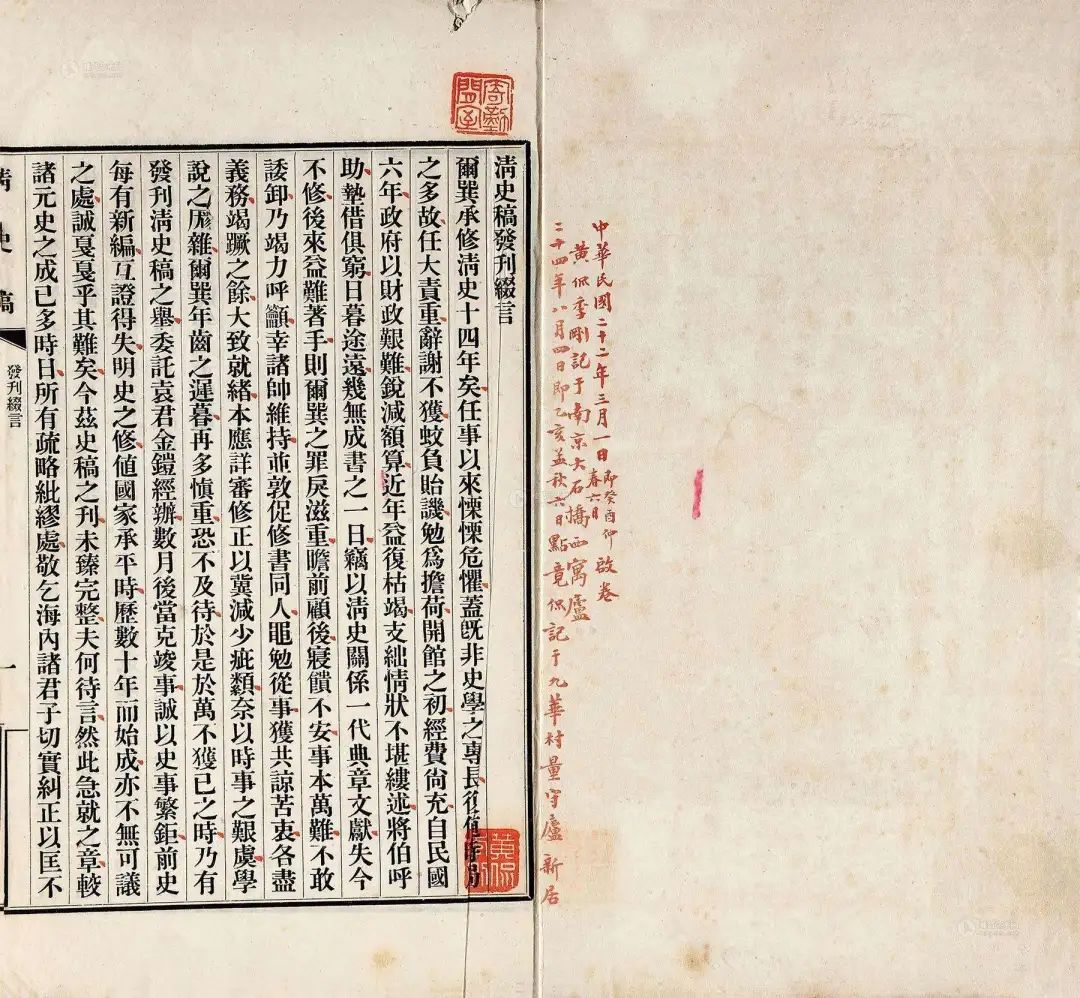 中華民國二十二年三月一日即癸酉仲春六日啟卷
黃侃季剛記于南京大石橋西寓廬
二十四年八月四日即乙亥孟秋六日點竟侃記于九華村量守廬新居
清史稿發刊綴言
爾巽承修清史十四年矣任事以來慄慄危懼蓋旣非史學之專長復值時局
之多故任大責重辭謝不獲蚊負貽譏勉爲擔荷開館之初經費尙充自民國
六年政府以財政艱難銳減額算近年益復枯竭支絀情狀不堪縷述將伯呼
助墊借俱窮日暮途遠幾無成書之一日竊以清史關係一代典章文獻失今
不修後來益難著手則爾巽之罪戾滋重瞻前顧後寢饋不安事本萬難不敢
諉卸乃竭力呼籲幸諸帥維持並敦促修書同人黽勉從事獲共諒苦衷各盡
義務竭蹶之餘大致就緒本應詳審修正以冀減少疵纇奈以時事之艱虞學
說之厖雜爾巽年齒之遲暮再多慎重恐不及待於是於萬不獲已之時乃有
發刊清史稿之舉委託袁君金鎧經辦數月後當克竣事誠以史事繁鉅前史
每有新編互證得失明史之修值國家承平時歷數十年而始成亦不無可議
之處誠戞戞乎其難矣今茲史稿之刊未臻完整夫何待言然此急就之章較
諸元史之成已多時日所有疏略紕繆處敬乞海內諸君子切實糾正以匡不
清史稿
發刊綴言
一
黃侃